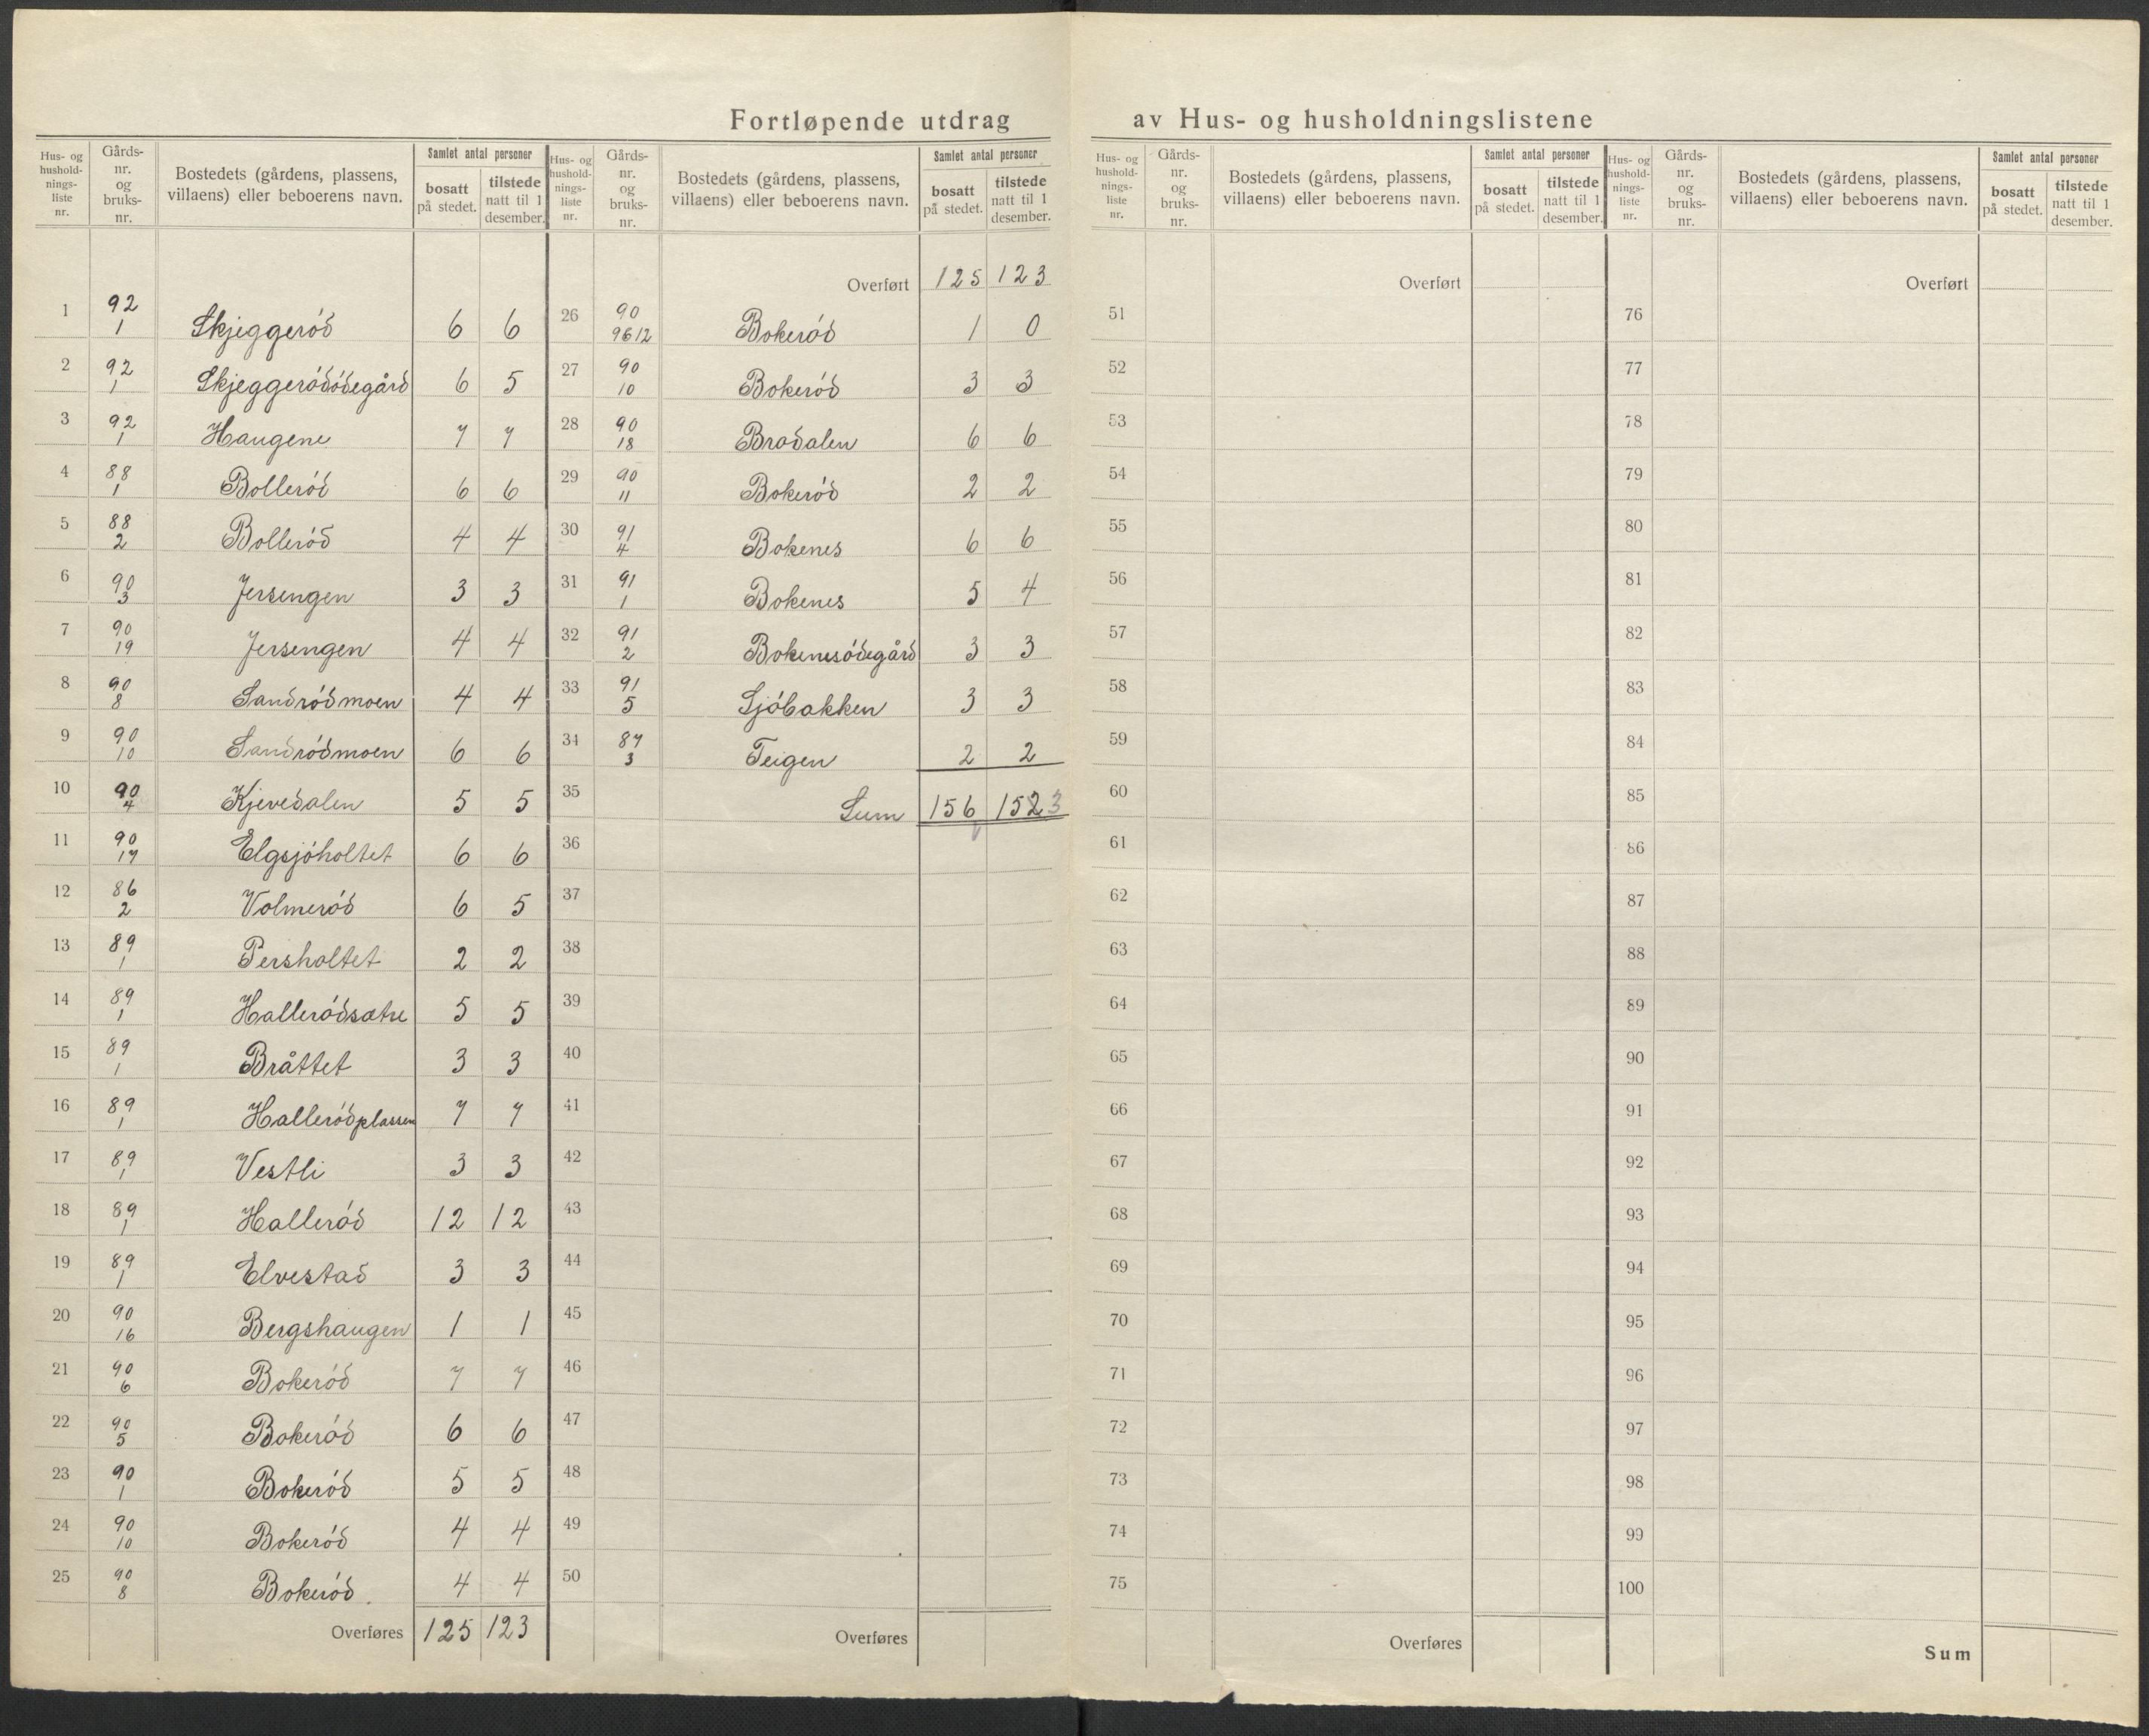 Fortløpende utdrag av Hus- og husholdningslistene
Hus- og husholdningsliste nr. | Gårdsnr. og bruksnr. | Bostedets (gårdens, plassens, villaens) eller beboerens navn. | Samlet antal personer | bosatt på stedet. | tilstede natt til 1 desember.
1 92/1 Skjeggerød 6 6
2 92/1 Skjeggerødødegård 6 5
3 92/1 Haugene 7 7
4 88/1 Bollerød 6 6
5 88/2 Bollerød 4 4
6 90/3 Jersengen 3 3
7 90/19 Jersengen 4 4
8 90/8 Sandrødmoen 4 4
9 90/10 Sandrødmoen 6 6
10 90/4 Kjevedalen 5 5
11 90/17 Elgsjøholtet 6 6
12 86/2 Volmerød 6 5
13 89/1 Persholtet 2 2
14 89/1 Hallerødsætre 5 5
15 89/1 Bråttet 3 3
16 89/1 Hallerødplassen 7 7
17 89/1 Vestli 3 3
18 89/1 Hallerød 12 12
19 89/1 Elvestad 3 3
20 90/16 Bergshaugen 1 1
21 90/6 Bokerød 7 7
22 90/5 Bokerød 6 6
23 90/1 Bokerød 5 5
24 90/10 Bokerød 4 4
25 90/8 Bokerød. 4 4
Overføres 125 123
Hus- og husholdningsliste nr. | Gårdsnr. og bruksnr. | Bostedets (gårdens, plassens, villaens) eller beboerens navn. | Samlet antal personer | bosatt på stedet. | tilstede natt til 1 desember.
Overført 125 123
26 90 Bokerød 1 0
27 90/10 Bokerød 3 3
28 90/18 Bradalen 6 6
29 90/11 Bokerød 2 2
30 91/4 Bokenes 6 6
31 91/1 Bokenes 5 4
32 91/2 Bokenesødegård 3 3
33 91/5 Sjøbakken 3 3
34 87/3 Teigen 2 2
35 Sum 156 152 3
36
37
38
39
40
41
42
43
44
45
46
47
48
49
50
Overføres
Hus- og husholdningsliste nr. | Gårdsnr. og bruksnr. | Bostedets (gårdens, plassens, villaens) eller beboerens navn. | Samlet antal personer | bosatt på stedet. | tilstede natt til 1 desember.
Overført
51
52
53
54
55
56
57
58
59
60
61
62
63
64
65
66
67
68
69
70
71
72
73
74
75
Overføres
Hus- og husholdningsliste nr. | Gårdsnr. og bruksnr. | Bostedets (gårdens, plassens, villaens) eller beboerens navn. | Samlet antal personer | bosatt på stedet. | tilstede natt til 1 desember.
Overført
76
77
78
79
80
81
82
83
84
85
86
87
88
89
90
91
92
93
94
95
96
97
98
99
100
Sum